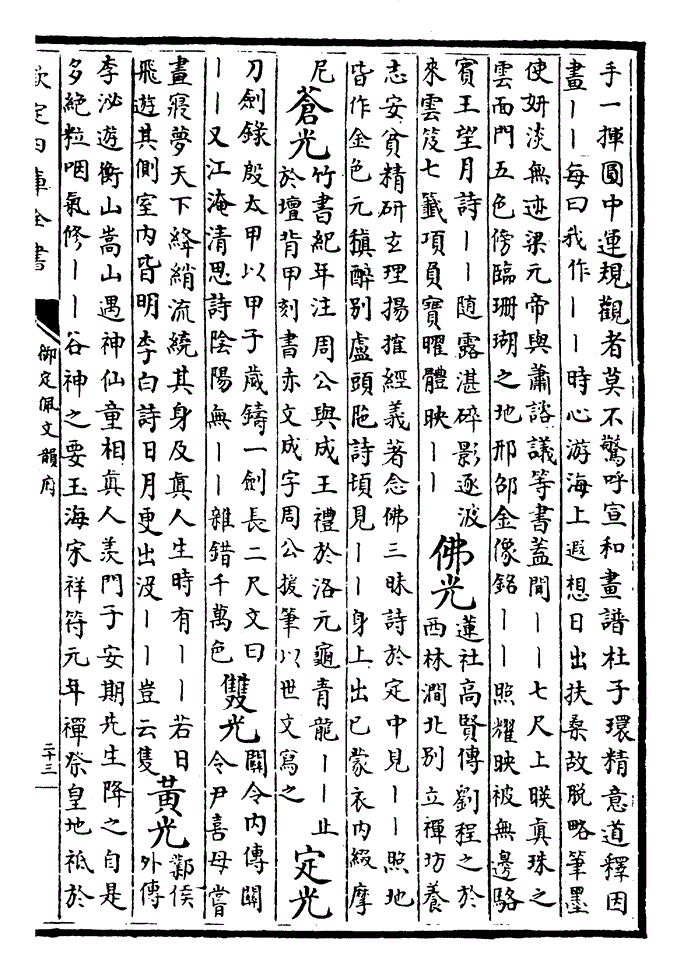 手一揮圓中運規觀者莫不驚呼宣和畫譜杜子環精意道釋因
畫丨丨每曰我作丨丨時心游海上遐想日出扶桑故脫略筆墨
使妍淡無迹梁元帝與蕭諮議等書蓋聞丨丨七尺上暎真珠之
雲面門五色傍臨珊瑚之地邢邵金像銘丨丨照耀映被無邊駱
賓王望月詩丨丨随露湛碎影逐波
來雲笈七籤項負寶曜體映丨丨
佛光
蓮社高賢傳劉程之於
西林澗北别立禪坊養
志安貧精研玄理揚搉經義著念佛三昧詩於定中見丨丨照地
皆作金色元稹醉别盧頭陁詩頃見丨丨身上出已蒙衣内綴摩
尼
蒼光
竹書紀年注周公與成王禮於洛元龜青龍丨丨止
於壇背甲刻書赤文成字周公援筆以世文寫之
定光
刀劍錄殷太甲以甲子歲鑄一劍長二尺文曰
丨丨又江淹清思詩陰陽無丨丨雜錯千萬色
雙光
關令内傳關
令尹喜母嘗
晝寢夢天下絳綃流繞其身及真人生時有丨丨若日
飛遊其側室内皆明李白詩日月更出没丨丨豈云隻
黄光
鄴侯
外傳
李泌遊衡山嵩山遇神仙童相真人羨門子安期先生降之自是
多絶粒咽氣修丨丨谷神之要玉海宋祥符元年禪祭皇地祗於
欽定四庫全書
御定佩文韻府
二十三